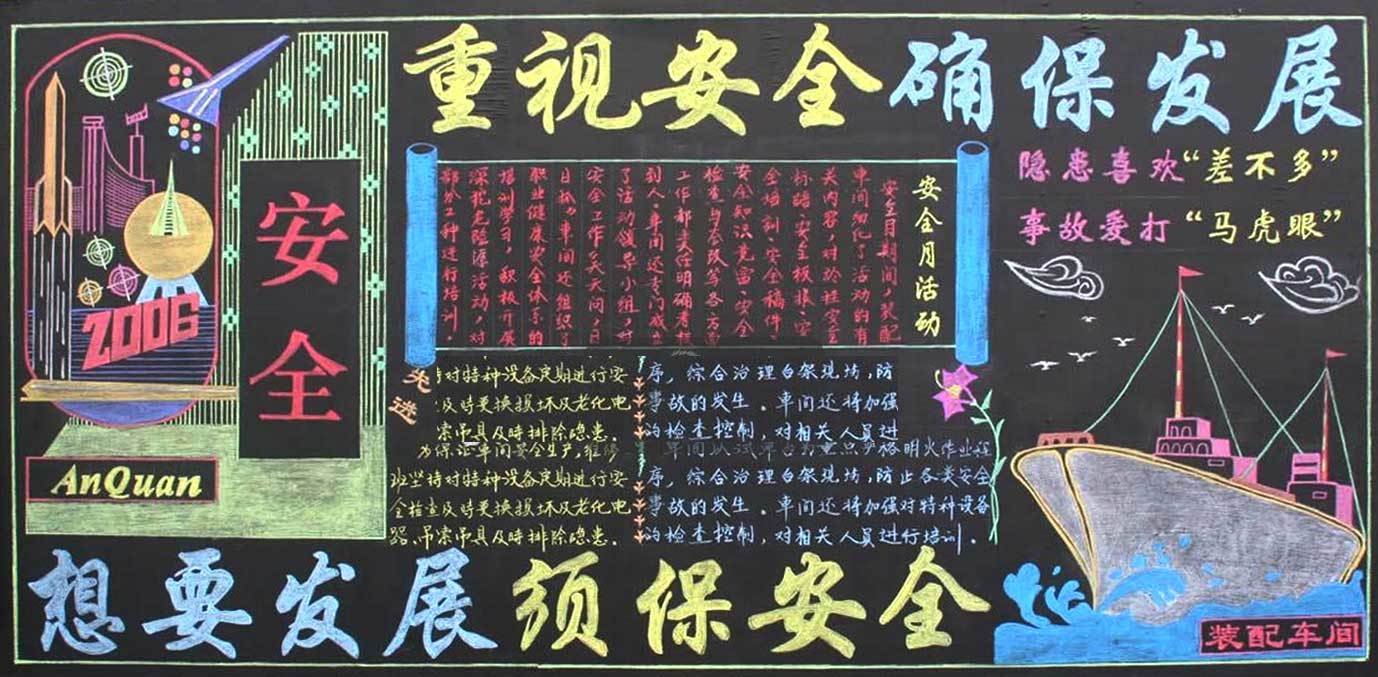 重视安全确保发展
隐患喜欢“差不多”
事故爱打“马虎眼”
安全
2006
AnQuan
安全月活动
安全月期间,装配
车间细化了活动的有
关内容,对於挂安全
标语、安全板报、安
全培训、安全稿件、
安全知识竞赛、安全
检查与整改等各方面
工作都责任明确考核
到人。车间还专门成立
了活动领导小组,对
安全工作天天问,日
日抓,车间还组织了
职业健康安全体系的
培训学习,积极开展
深挖危险源活动,对
部分工种进行培训。
先进
持对特种设备定期进行安
及時更换损坏及老化电
索吊具及時排除隐患。
为保证车间安全生产,维修
班坚持对特种设备定期进行安
全检查及時更换损坏及老化电
器、吊索吊具及時排除隐患。
序,综合治理台架现场,防
事故的发生。车间还将加强
的检查控制,对相关人员进
车间以试车台为重点严格明火作业程
序,综合治理台架现场,防止各类安全
事故的发生。车间还将加强对特种设备
的检查控制,对相关人员进行培训。
想要发展须保安全
装配车间